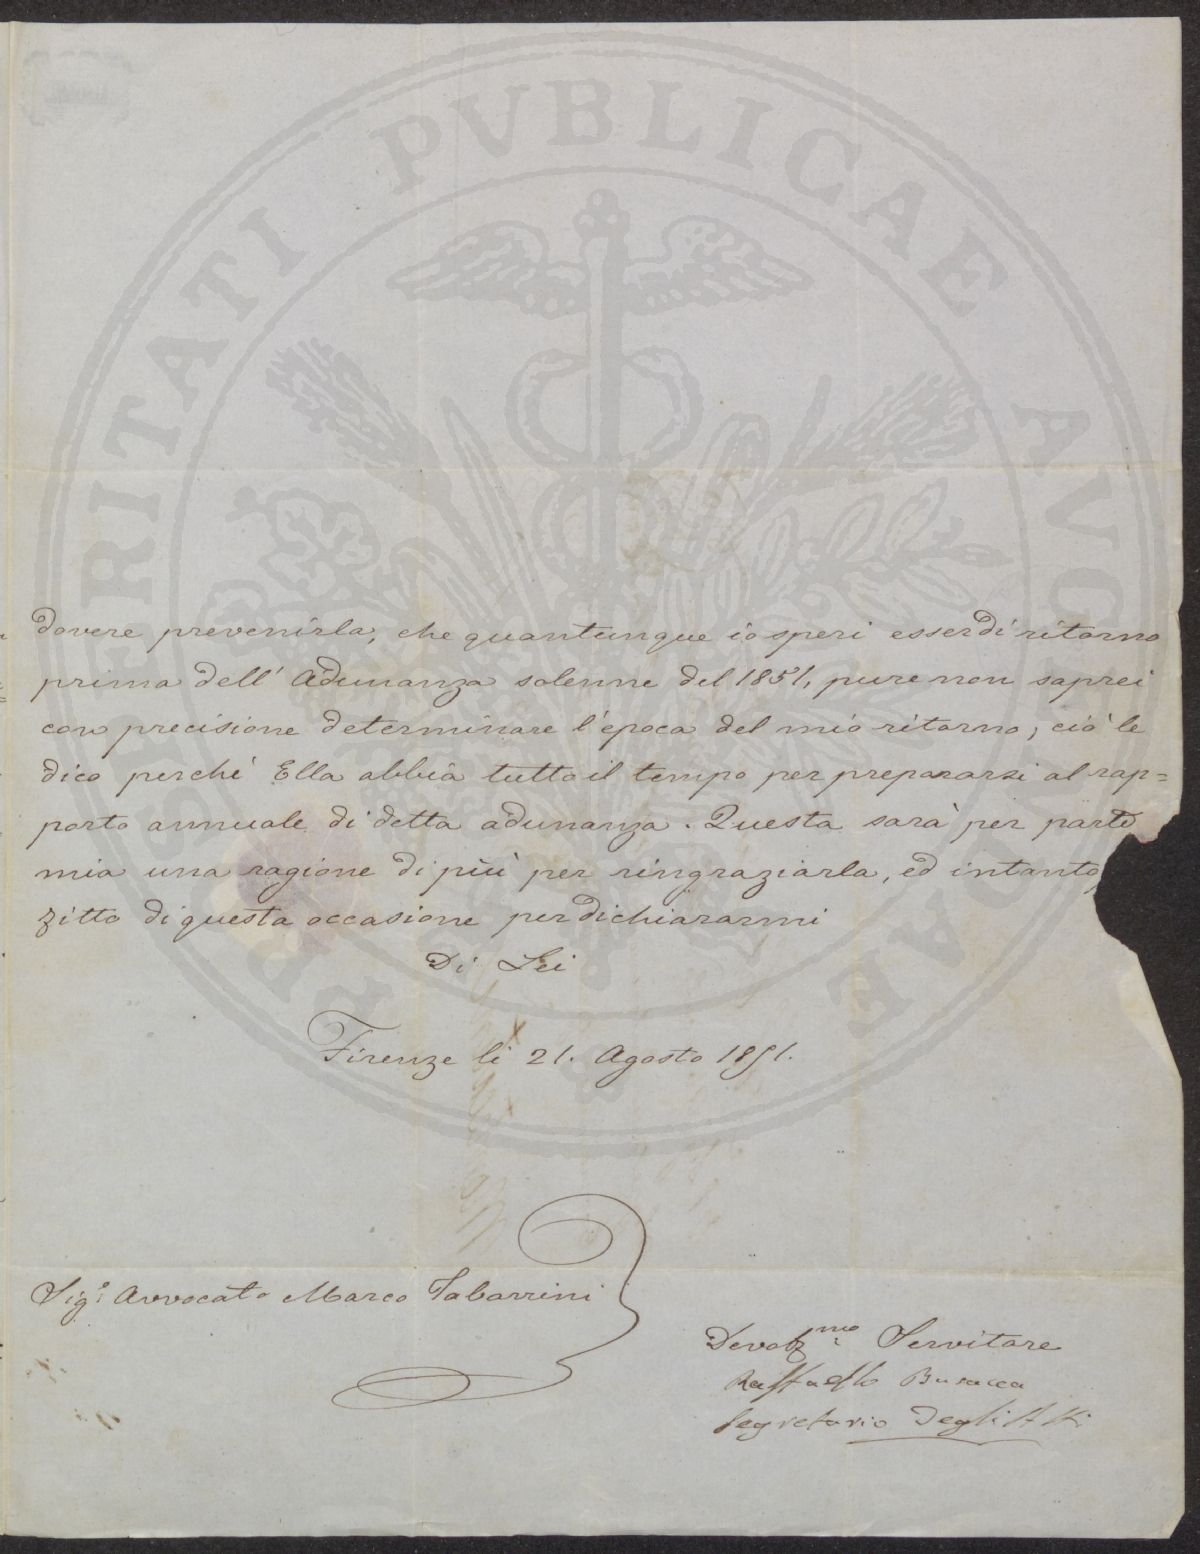 PROSPERITATI PVBLICAE AVGENDAE
dovere prevenirla, che quantunque io speri esser di ritorno
prima dell' Adunanza solenne del 1851, pure non saprei
con precisione determinare l'epoca del mio ritorno; ciò le
dico perchè Ella abbia tutto il tempo per prepararsi al rap=
porto annuale di detta adunanza. Questa sarà per parte
mia una ragione di più per ringraziarla, ed intanto
zitto di questa occasione per dichiararmi
Di Lei
Firenze li 21. Agosto 1851.
Sig.r Avvocato Marco Tabarrini
Devot.mo Servitore
Raffaello Busacca
Segretario Degli Atti